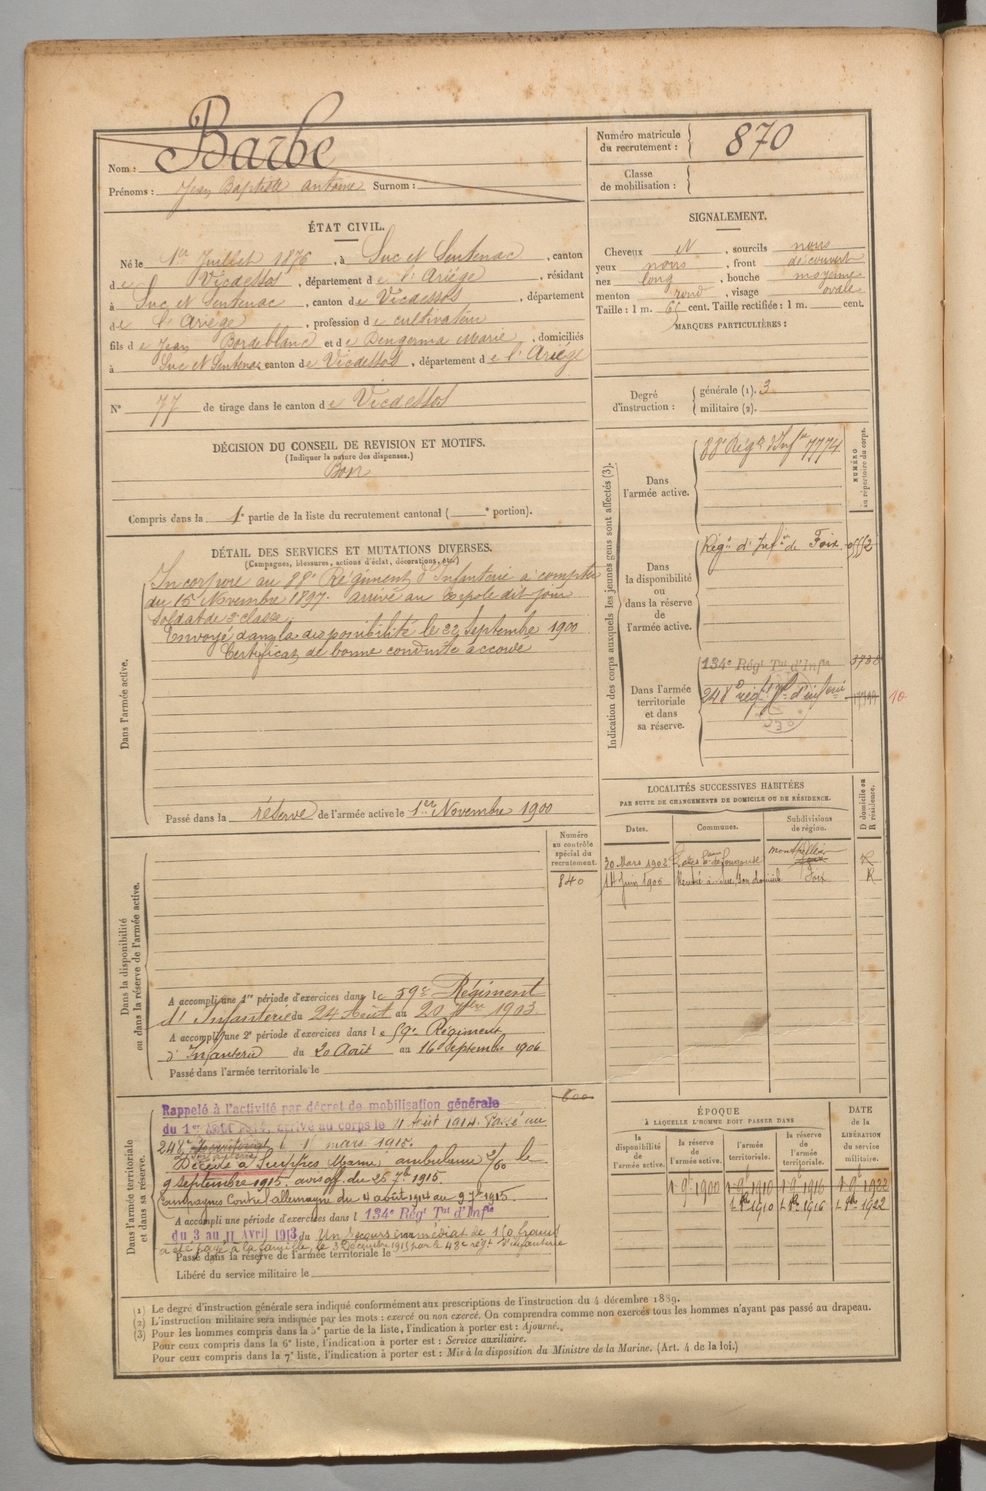 Nom : Barbe
Prénoms : Jean Baptiste Antoine Surnom :
Numéro matricule du recrutement : 870
Classe de mobilisation :
ÉTAT CIVIL.
Né le 1er Juillet 1876, à Suc et Sentenac, canton
de Vicdessos, département de l'Ariège, résidant
à Suc et Sentenac, canton de Vicdessos, département
de l'Ariège, profession de cultivateur
fils de Jean Bordeblanc et de Dengerma Marie, domiciliés
à Suc et Sentenac canton de Vicdessos, département de l'Ariège
N° 77 de tirage dans le canton de Vicdessos
SIGNALEMENT.
Cheveux N, sourcils noirs
yeux noirs, front découvert
nez long, bouche moyenne
menton rond, visage ovale
Taille : 1 m. 65 cent. Taille rectifiée : 1 m. cent.
MARQUES PARTICULIÈRES :
Degré d'instruction : générale (1). 3
militaire (2).
DÉCISION DU CONSEIL DE REVISION ET MOTIFS.
(Indiquer la nature des dispenses.)
Bon
Compris dans la 1e partie de la liste du recrutement cantonal ( e portion).
DÉTAIL DES SERVICES ET MUTATIONS DIVERSES.
(Campagnes, blessures, actions d'éclat, décorations, etc.)
Dans l'armée active.
Incorporé au 88e Régiment d'Infanterie à compter
du 15 Novembre 1897. arrivé au Corps le dit jour
Soldat de 2e classe
Envoyé dans la disponibilité le 22 Septembre 1900
Certificat de bonne conduite accordé
Passé dans la réserve de l'armée active le 1er Novembre 1900
Indication des corps auxquels les jeunes gens sont affectés (3).
NUMÉRO au répertoire du corps.
Dans l'armée active.
88e Régt d'Infie 7774
Dans la disponibilité ou dans la réserve de l'armée active.
Régt d'Infie de Foix
Dans l'armée territoriale et dans sa réserve.
134e Régt Tal d'Infie
248e régt d'infie
10
LOCALITÉS SUCCESSIVES HABITÉES
PAR SUITE DE CHANGEMENTS DE DOMICILE OU DE RÉSIDENCE.
Dates. Communes. Subdivisions de région. D domicile ou R résidence.
30 Mars 1902 Montpellier R
14 Juin 1906 Rentré à son domicile Foix R
Dans la disponibilité ou dans la réserve de l'armée active.
Numéro au contrôle spécial du recrutement.
840
A accompli une 1re période d'exercices dans le 59e Régiment
d'Infanterie du 24 Août au 20 7bre 1903.
A accompli une 2e période d'exercices dans le 59e Régiment
d'Infanterie du 20 Août au 16 Septembre 1906
Passé dans l'armée territoriale le
Dans l'armée territoriale et dans sa réserve.
600
Rappelé à l'activité par décret de mobilisation générale
du 1er Août 1914, arrivé au corps le 4 Août 1914. Passé au
248e le 1 mars 1915.
Décédé à Suippes Marne ambulance 2/60 le
9 Septembre 1915. avis off. du 25 7bre 1915.
Campagnes Contre l'allemagne du 4 août 1914 au 9 7bre 1915.
A accompli une période d'exercices dans l 134e Régt Tal d'Infie
du 3 au 11 Avril 1913 du Un secours immédiat de 150 francs
a été payé à la famille, le 3 Décembre 1915 par le 48e régt d'infanterie
Passé dans la réserve de l'armée territoriale le
Libéré du service militaire le
ÉPOQUE
À LAQUELLE L'HOMME DOIT PASSER DANS
DATE de la LIBÉRATION du service militaire.
la disponibilité de l'armée active. la réserve de l'armée active. l'armée territoriale. la réserve de l'armée territoriale.
1 9bre 1900 1 9bre 1910 1 9bre 1916 1 9bre 1922
1 8bre 1910 1 8bre 1916 1 8bre 1922
(1) Le degré d'instruction générale sera indiqué conformément aux prescriptions de l'instruction du 4 décembre 1889.
(2) L'instruction militaire sera indiquée par les mots : exercé ou non exercé. On comprendra comme non exercés tous les hommes n'ayant pas passé au drapeau.
(3) Pour les hommes compris dans la 5e partie de la liste, l'indication à porter est : Ajourné.
Pour ceux compris dans la 6e liste, l'indication à porter est : Service auxiliaire.
Pour ceux compris dans la 7e liste, l'indication à porter est : Mis à la disposition du Ministre de la Marine. (Art. 4 de la loi.)